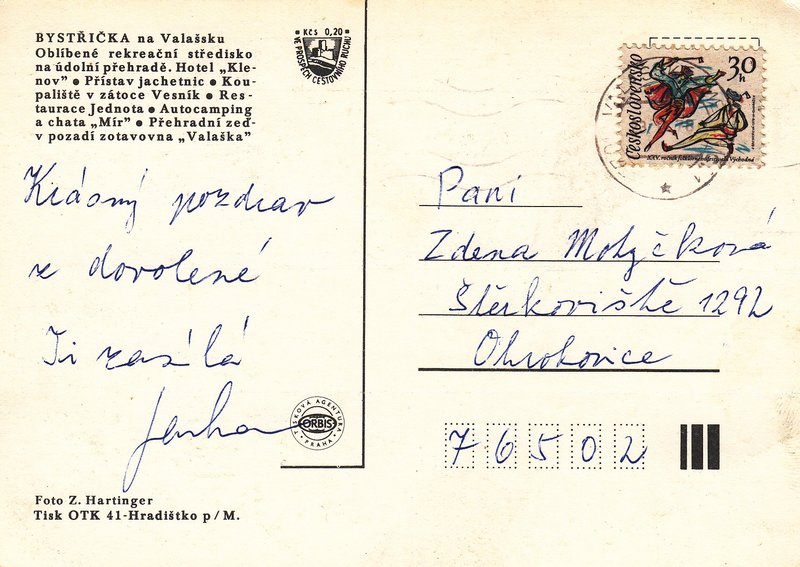 BYSTŘIČKA na Valašsku
Oblíbené rekreační středisko
na údolní přehradě. Hotel „Kle-
nov" • Přístav jachetnic • Kou-
paliště v zátoce Vesník • Res-
taurace Jednota • Autocamping
a chata „Mír" • Přehradní zeď-
v pozadí zotavovna „Valaška"
Kčs 0,20
VE PROSPĚCH CESTOVNÍHO RUCHU
Československo
30
h
XXV. ročník folklórneho festivalu Východná
Krásný pozdrav
z dovolené
Ti zasílá
Jenka
Paní
Zdena Motyčková
Štěrkoviště 1292
Otrokovice
76502
TISKOVÁ AGENTURA
ORBIS
PRAHA
Foto Z. Hartinger
Tisk OTK 41-Hradištko p/M.